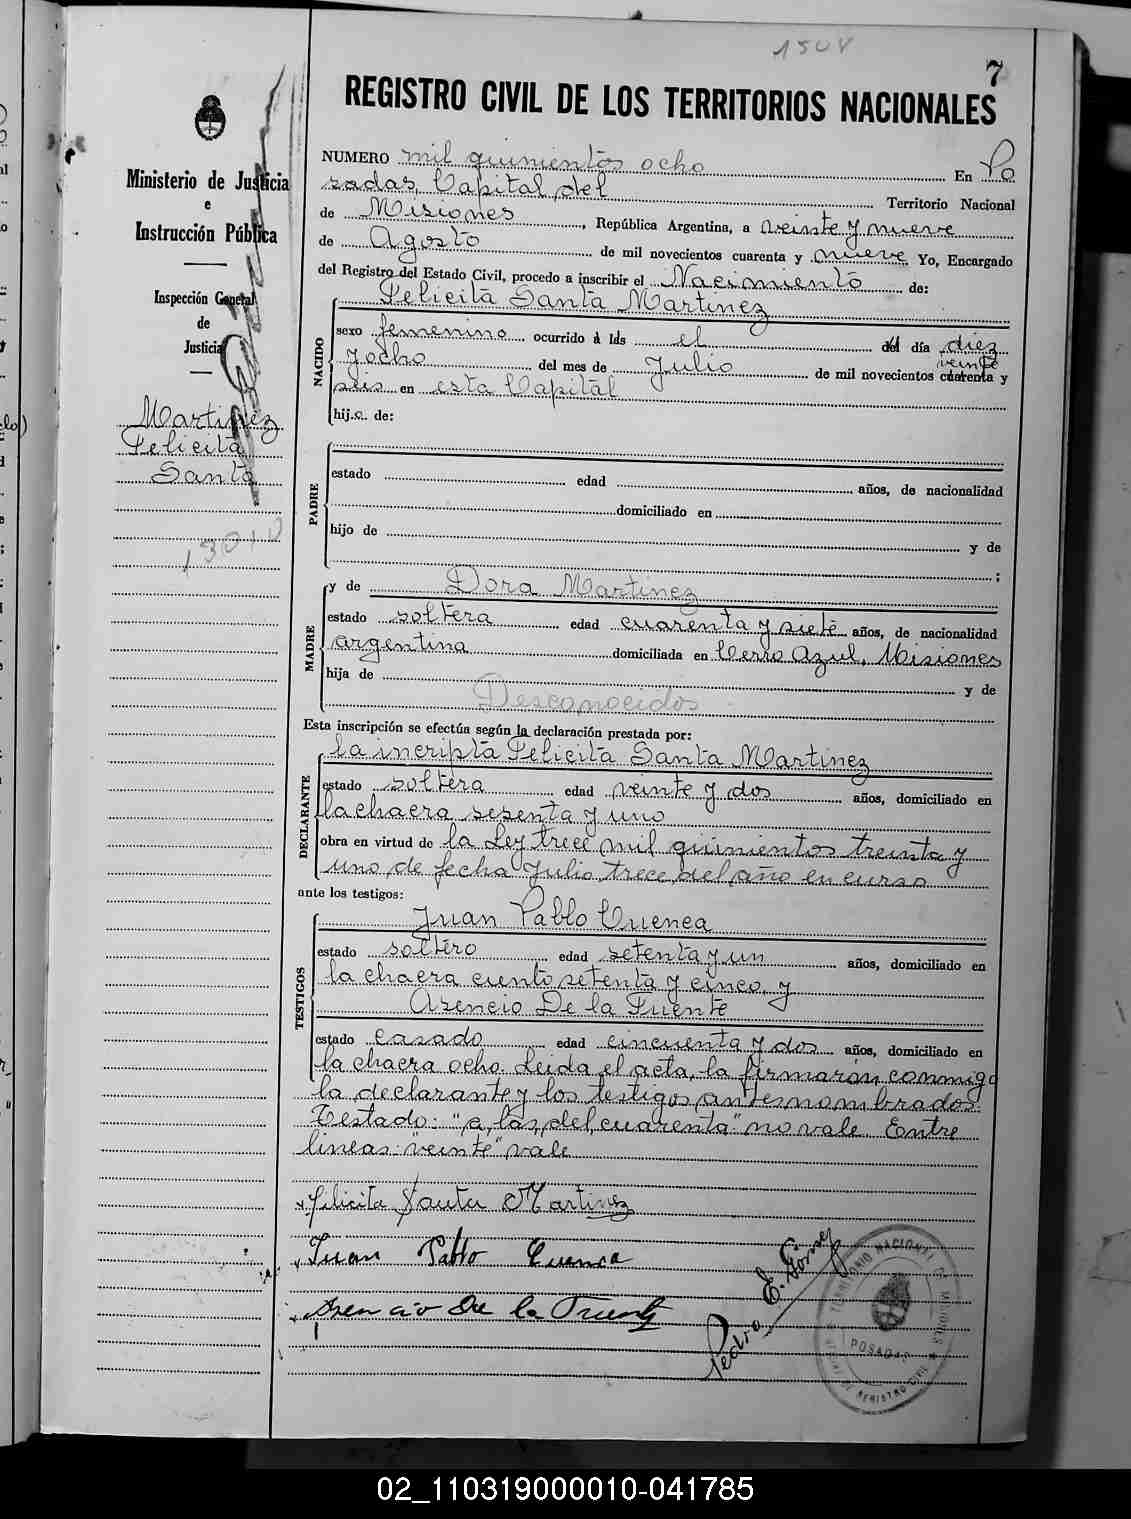 1508
7
REGISTRO CIVIL DE LOS TERRITORIOS NACIONALES
Ministerio de Justicia
e
Instrucción Pública
Inspección General
de
Justicia
Martinez
Felicita
Santa
NUMERO mil quinientos ocho En Po
sadas, Capital del Territorio Nacional
de Misiones, República Argentina, a veinte y nueve
de Agosto de mil novecientos cuarenta y nueve Yo, Encargado
del Registro del Estado Civil, procedo a inscribir el Nacimiento de:
NACIDO
Felicita Santa Martinez
sexo femenino ocurrido á las el del día diez
veinte
y ocho del mes de Julio de mil novecientos cuarenta y
seis en esta Capital
hij.o. de:
PADRE
estado edad años, de nacionalidad
domiciliado en
hijo de y de
;
MADRE
y de Dora Martinez
estado soltera edad cuarenta y siete años, de nacionalidad
argentina domiciliada en Cerro Azul, Misiones
hija de y de
Desconocidos
Esta inscripción se efectúa según la declaración prestada por:
DECLARANTE
la incripta Felicita Santa Martinez
estado soltera edad veinte y dos años, domiciliado en
la chacra sesenta y uno
obra en virtud de la Ley trece mil quinientos treinta y
uno de fecha Julio trece del año en curso
ante los testigos:
TESTIGOS
Juan Pablo Cuenca
estado soltero edad setenta y un años, domiciliado en
la chacra ciento setenta y cinco, y
Asencio De la Fuente
estado casado edad cincuenta y dos años, domiciliado en
la chacra ocho. Leida el acta, la firmarán conmigo
la declarante y los testigos antesnombrados.
Testado: "a, las, del, cuarenta" no vale Entre
lineas: "veinte" vale
Felicita Santa Martinez
Juan Pablo Cuenca
Asencio De la Fuente
Pedro E. Gómez
TERRITORIO NACIONAL DE MISIONES
POSADAS
REGISTRO CIVIL
02_110319000010-041785